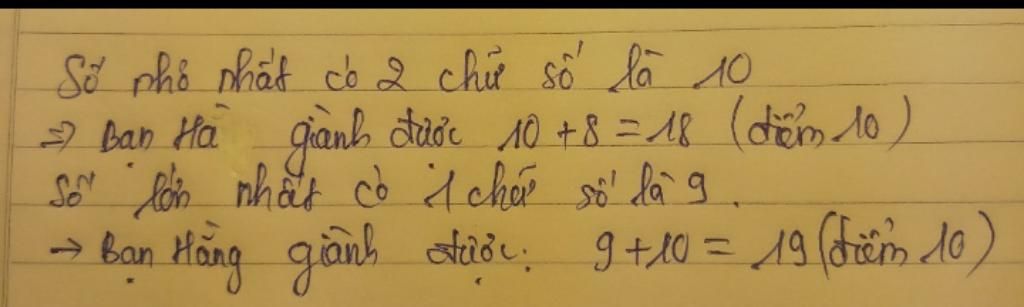 Số nhỏ nhất có 2 chữ số là 10
=> Bạn Hà giành được 10 + 8 = 18 (điểm 10)
Số lớn nhất có 1 chữ số là 9.
→ Bạn Hằng giành được: 9 + 10 = 19 (điểm 10)